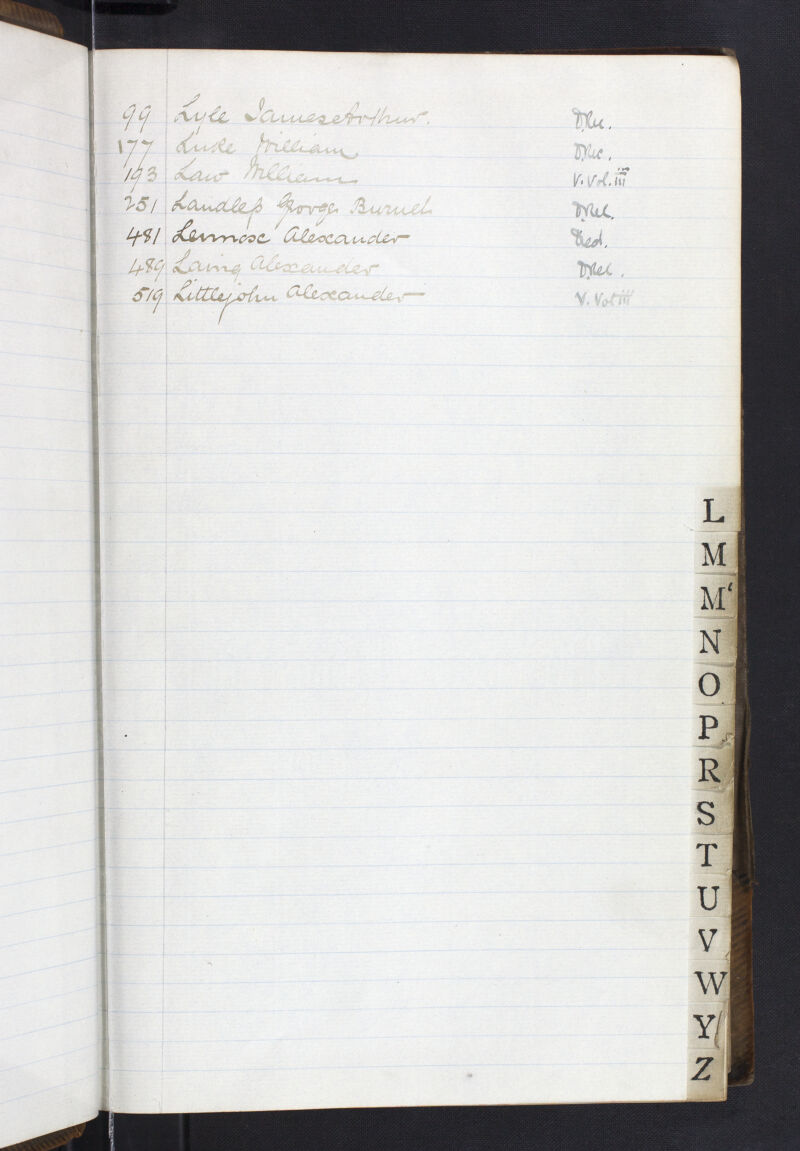 99 Lyle James Arthur. D.Rec.
177 Luke William D.Rec.
193 Law William V. Vol. iii
251 Landless George Burnet D.Rec.
481 Lennox Alexander Died.
489 Laing Alexander D.Rec.
519 Littlejohn Alexander V. Vol iii
L
M
M‘
N
O
P
R
S
T
U
V
W
Y
Z